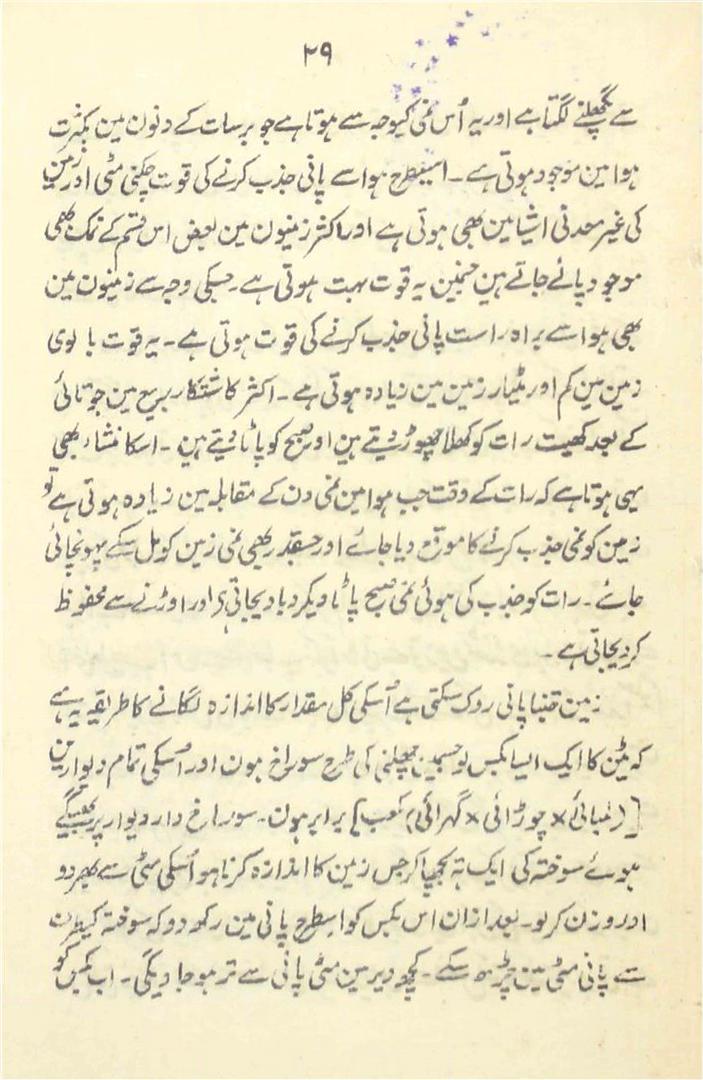 ۲۹
سے پگھلنے لگتا ہے اور یہ اُس نمی کیوجہ سے ہوتا ہے جو برسات کے دنون مین بکثرت
ہوا مین موجود ہوتی ہے۔ اسیطرح ہوا سے پانی جذب کرنے کی قوت چکنی مٹی اور زمین
کی غیر معدنی اشیا مین بھی ہوتی ہے اور اکثر زمینون مین بعض اس قسم کے نمک بھی
موجود پائے جاتے ہین جنمین یہ قوت بہت ہوتی ہے۔ جسکی وجہ سے زمینون مین
بھی ہوا سے براہ راست پانی جذب کرنے کی قوت ہوتی ہے۔ یہ قوت بالوی
زمین مین کم اور مٹیار زمین مین زیادہ ہوتی ہے۔ اکثر کاشتکار ربیع مین جوتائی
کے بعد کھیت رات کو کھلا چھوڑ دیتے ہین اور صبح کو پاٹا دیتے ہین۔ اسکا منشاء بھی
یہی ہوتا ہے کہ رات کے وقت جب ہوا مین نمی دن کے مقابلہ مین زیادہ ہوتی ہے تو
زمین کو نمی جذب کرنے کا موقع دیا جائے اور جسقدر بھی نمی زمین کو مل سکے پہونچائی
جائے۔ رات کو جذب کی ہوئی نمی صبح پاٹا دیکر دبا دیجاتی ہے اور اوڑنے سے محفوظ
کر دیجاتی ہے۔
زمین جتنا پانی روک سکتی ہے اُسکی کل مقدار کا اندازہ لگانے کا طریقہ یہ ہے
کہ ٹین کا ایک ایسا بکس لو جسمین چھلنی کی طرح سوراخ ہون اور اُسکی تمام دیوارین
[(لمبائی × چوڑائی × گہرائی) مکعب] برابر ہون۔ سوراخ دار دیوار پر بھیگے
ہوئے سوختہ کی ایک تہ بچھا کر جس زمین کا اندازہ کرنا ہو اُسکی مٹی سے بھر دو
اور وزن کرلو۔ بعد ازان اس بکس کو اسطرح پانی مین رکھ دو کہ سوختہ کیطرف
سے پانی مٹی مین چڑھ سکے۔ کچھ دیر مین مٹی پانی سے تر ہو جاویگی۔ اب بکس کو